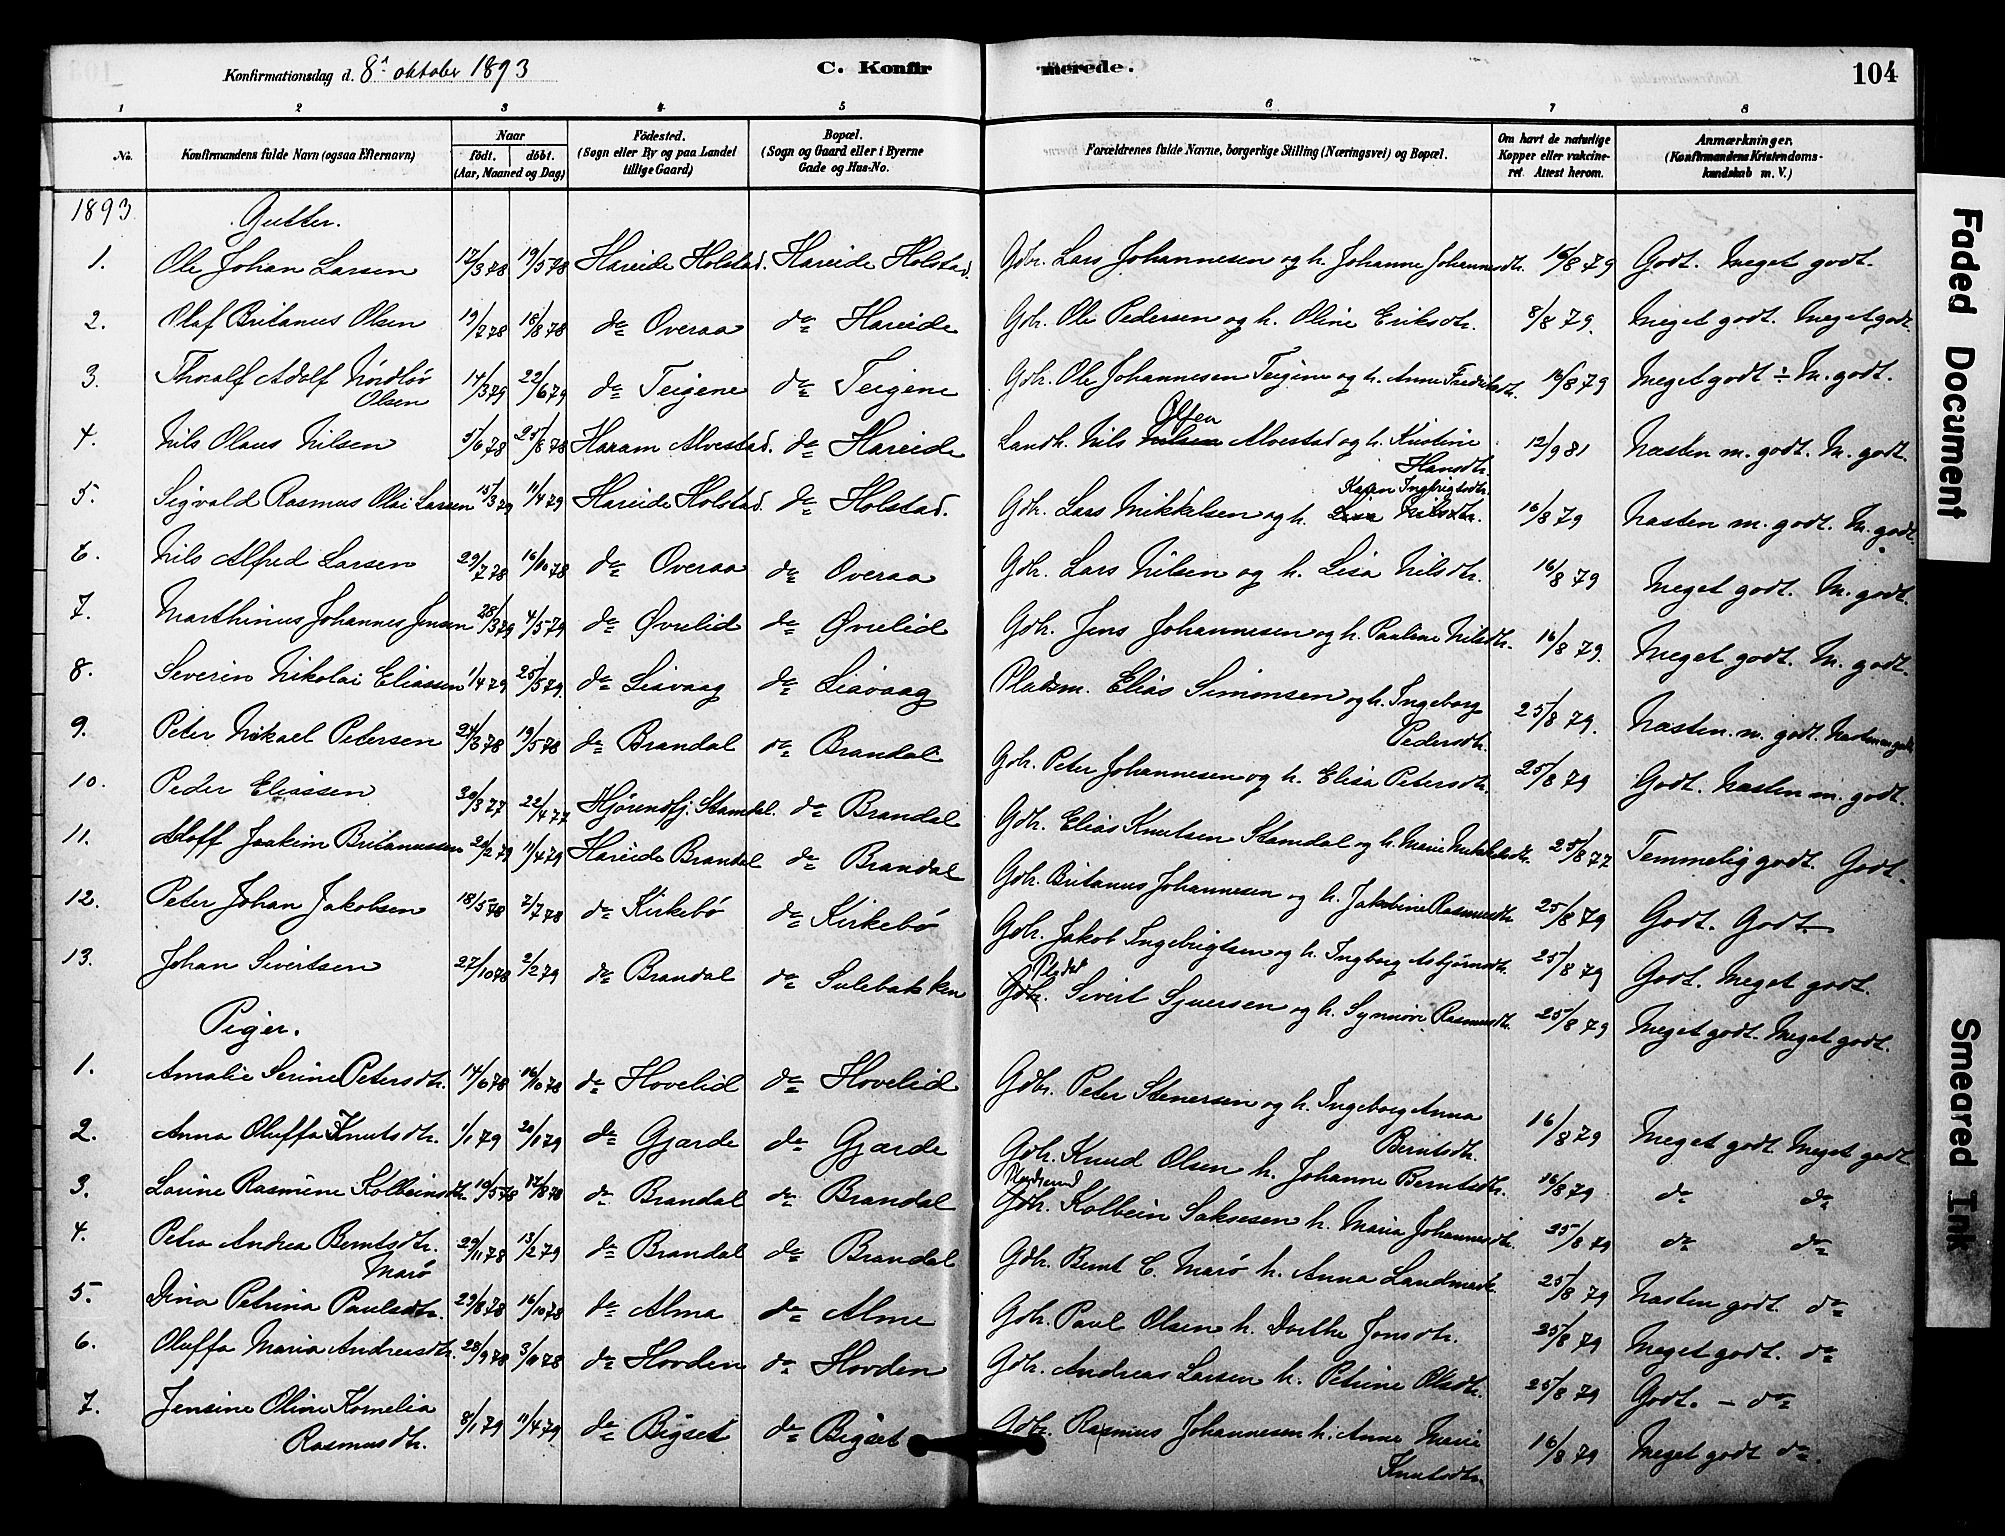 Konfirmationsdag d. 8de oktober 1893 C. Konfirmerede. 104
1 2 3 4 5 6 7 8
No. Konfirmandens fulde Navn (ogsaa Efternavn) Naar født. døbt. (Aar, Maaned og Dag) Fødested. (Sogn eller By og paa Landet tillige Gaard) Bopæl. (Sogn og Gaard eller i Byerne Gade og Hus-No. Forældrenes fulde Navne, borgerlige Stilling (Næringsvei) og Bopæl. Om havt de naturlige Kopper eller vakcineret. Attest herom. Anmærkninger. (Konfirmandens Kristendomskundskab m. V.)
1893 Gutter.
1. Ole Johan Larsen 17/3 78 19/5 78 Hareide Holstad. Hareide Holstad. Gbr. Lars Johannesen og h. Johanne Johannesdtr. 16/8 79 Godt. Meget godt.
2. Olaf Britanus Olsen 19/7 78 18/8 78 do Overaa do Hareide Gbr. Ole Pedersen og h. Oline Eriksdtr. 8/8 79. Meget godt. Meget godt.
3. Thoralf Adolf Nordløv Olsen 14/3 79 22/6 79 do Teigene do Teigene Gbr. Ole Johannesen Teigene og h. Anne Fredriksdtr. 16/8 79 Meget godt ÷ M. godt.
4. Nils Olaus Nilsen 5/6 78 25/8 78 Haram Alvestad. do Hareide Landh. Nils Olsen Alvestad og h. Kristine Hansdtr. 12/9 81 Næsten m. godt. M. godt.
5. Sigvald Rasmus Olai Larsen 15/3 79 11/4 79 Hareide Holstad. do Holstad. Gbr. Lars Mikkelsen og h. Karen Ingbrigtsdtr. 16/8 79 Næsten m. godt. M. godt.
6. Nils Alfred Larsen 29/7 78 16/10 78 do Overaa do Overaa Gbr. Lars Nilsen og h. Lisa Nilsdtr. 16/8 79 Meget godt. M. godt.
7. Marthinus Johannes Jensen 28/3 79 4/5 79 do Øvrelid do Øvrelid Gbr. Jens Johannesen og h. Pauline Nilsdtr. 16/8 79. Meget godt. M. godt.
8. Severin Nikolai Eliassen 1/4 79 25/5 79. do Liavaag do Liavaag Pladsm. Elias Simonsen og h. Ingeborg Pedersdtr. 25/8 79. Næsten. m. godt. Næsten m. godt
9. Peter Mikael Petersen 24/3 78 19/5 78 do Brandal do Brandal Gbr. Peter Johannesen og h. Elisa Petersdtr. 25/8 79 Godt. Næsten m. godt.
10. Peder Eliassen 30/3 77 22/4 77 Hjørundfj. Stamdal. do Brandal Gbr. Elias Knutsen Stamdal og h. Marie Mikkelsdtr. 25/8 77 Temmelig godt. Godt.
11. Aloff Joakim Britanussen 20/2 79 11/4 79 Hareide Brandal do Brandal Gbr. Britanus Johannesen og h. Jakobine Rasmusdtr. 25/8 79 Godt. Godt.
12. Peter Johan Jakobsen 18/5 78 7/7 78 do Kirkebø do Kirkebø Gbr. Jakob Ingebrigtsen og h. Ingborg Asbjørnsdtr. 25/8 79 Godt. Meget godt.
13. Johan Sivertsen 27/10 78 2/2 79 do Brandal do Sulebakken Sivert Sjursen og h. Synnøve Rasmusdtr. 25/8 79 Meget godt. Meget godt.
Piger.
1. Amalie Serine Petersdtr. 14/6 78 16/10 78 do Hovelid do Hovelid Gbr. Peter Stenersen og h. Ingeborg Anna Berntsdtr. 16/8 79 Meget godt Meget godt
2. Anna Oluffa Knutsdtr. 1/1 79 20/1 79 do Gjærde do Gjærde Gbr. Knud Olsen h. Johanne Berntsdtr. 16/8 79 do do
3. Lovine Rasmine Kolbeinsdtr. 19/5 78 17/8 78 do Brandal do Brandal Kolbein Saksesen h. Maria Johannesdtr. 25/8 79 do do
4. Petra Andrea Berntsdtr. Marø 29/11 78 13/2 79 do Brandal do Brandal Gbr. Bernt C. Marø h. Anna Landmark. 25/8 79 Næsten godt. do
5. Dina Petrina Paulsdtr. 29/8 78 16/10 78 do Alma do Alme Gbr. Paul Olsen h. Dorthe Jonsdtr. 25/8 79 Meget godt. do
6. Oluffa Maria Andreasdtr. 28/9 78 3/11 78 do Hovden do Hovden Gbr. Andreas Larsen h. Petrine Olsdtr. 25/8 79 Godt. – do
7. Jensine Oline Kornelia Rasmusdtr. 8/1 79 11/4 79 do Bigset do Bigset Gbr. Rasmus Johannesen h. Anne Marie Knutsdtr. 16/8 79 Meget godt do.
Faded Document
Smeared Ink